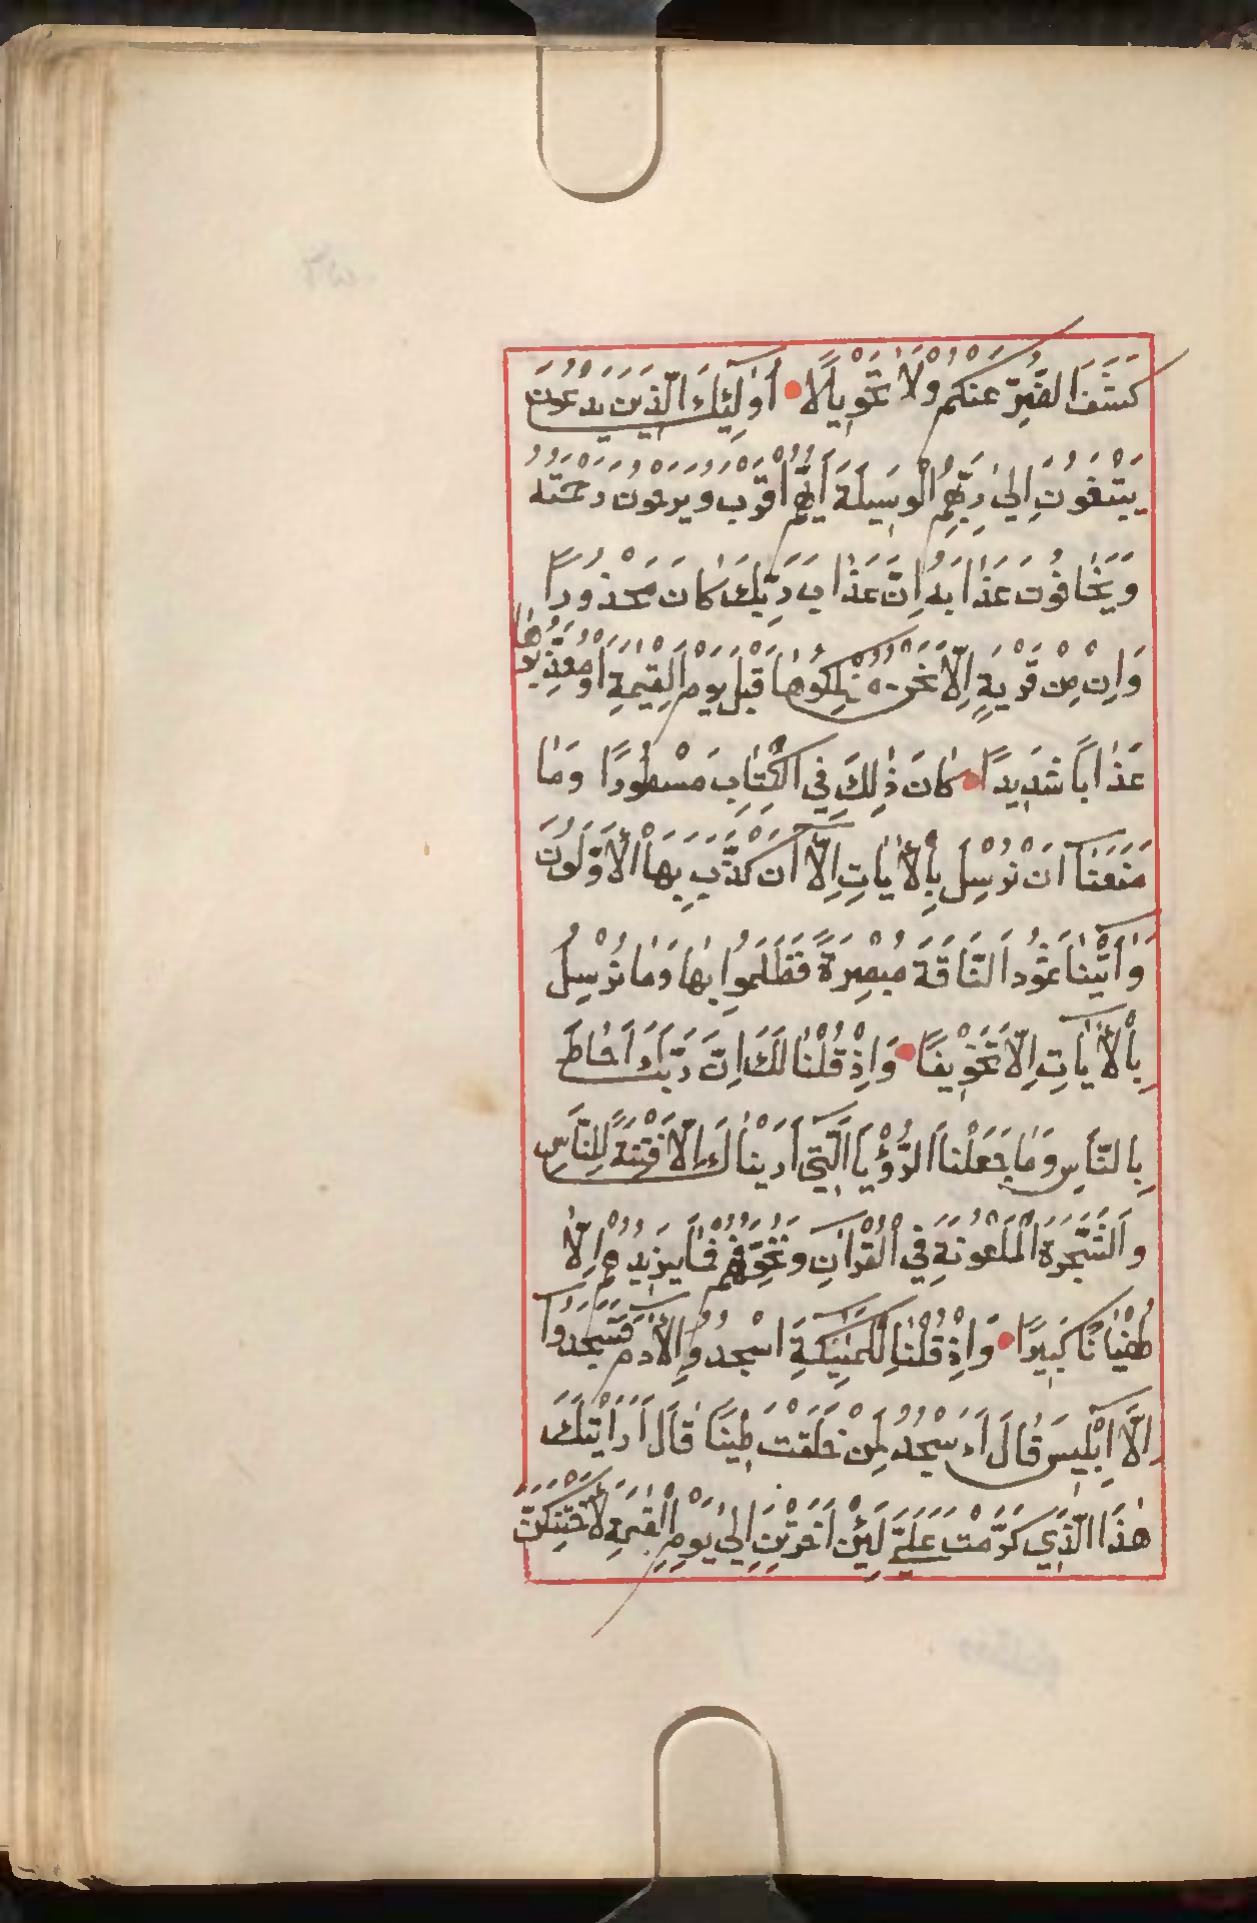 كَشْفَ الضُّرِّ عَنْكُمْ وَلَا تَحْوِيلًا اُولٰئِكَ الَّذِينَ يَدْعُونَ
يَبْتَغُونَ اِلٰى رَبِّهِمُ الْوَسِيلَةَ اَيُّهُمْ اَقْرَبُ وَيَرْجُونَ رَحْمَتَهُ
وَيَخَافُونَ عَذَابَهُ اِنَّ عَذَابَ رَبِّكَ كَانَ مَحْذُورًا
وَاِنْ مِنْ قَرْيَةٍ اِلَّا نَحْنُ مُهْلِكُوهَا قَبْلَ يَوْمِ الْقِيٰمَةِ اَوْ مُعَذِّبُوهَا
عَذَابًا شَدِيدًا كَانَ ذٰلِكَ فِي الْكِتَابِ مَسْطُورًا وَمَا
مَنَعَنَا اَنْ نُرْسِلَ بِالْاٰيَاتِ اِلَّا اَنْ كَذَّبَ بِهَا الْاَوَّلُونَ
وَاٰتَيْنَا ثَمُودَ النَّاقَةَ مُبْصِرَةً فَظَلَمُوا بِهَا وَمَا نُرْسِلُ
بِالْاٰيَاتِ اِلَّا تَخْوِيفًا وَاِذْ قُلْنَا لَكَ اِنَّ رَبَّكَ اَحَاطَ
بِالنَّاسِ وَمَا جَعَلْنَا الرُّؤْيَا الَّتِي اَرَيْنَاكَ اِلَّا فِتْنَةً لِلنَّاسِ
وَالشَّجَرَةَ الْمَلْعُونَةَ فِي الْقُرْاٰنِ وَنُخَوِّفُهُمْ فَمَا يَزِيدُهُمْ اِلَّا
طُغْيَانًا كَبِيرًا وَاِذْ قُلْنَا لِلْمَلٰئِكَةِ اسْجُدُوا لِاٰدَمَ فَسَجَدُوا
اِلَّا اِبْلِيسَ قَالَ ءَاَسْجُدُ لِمَنْ خَلَقْتَ طِينًا قَالَ اَرَاَيْتَكَ
هٰذَا الَّذِي كَرَّمْتَ عَلَيَّ لَئِنْ اَخَّرْتَنِ اِلٰى يَوْمِ الْقِيٰمَةِ لَاَحْتَنِكَنَّ